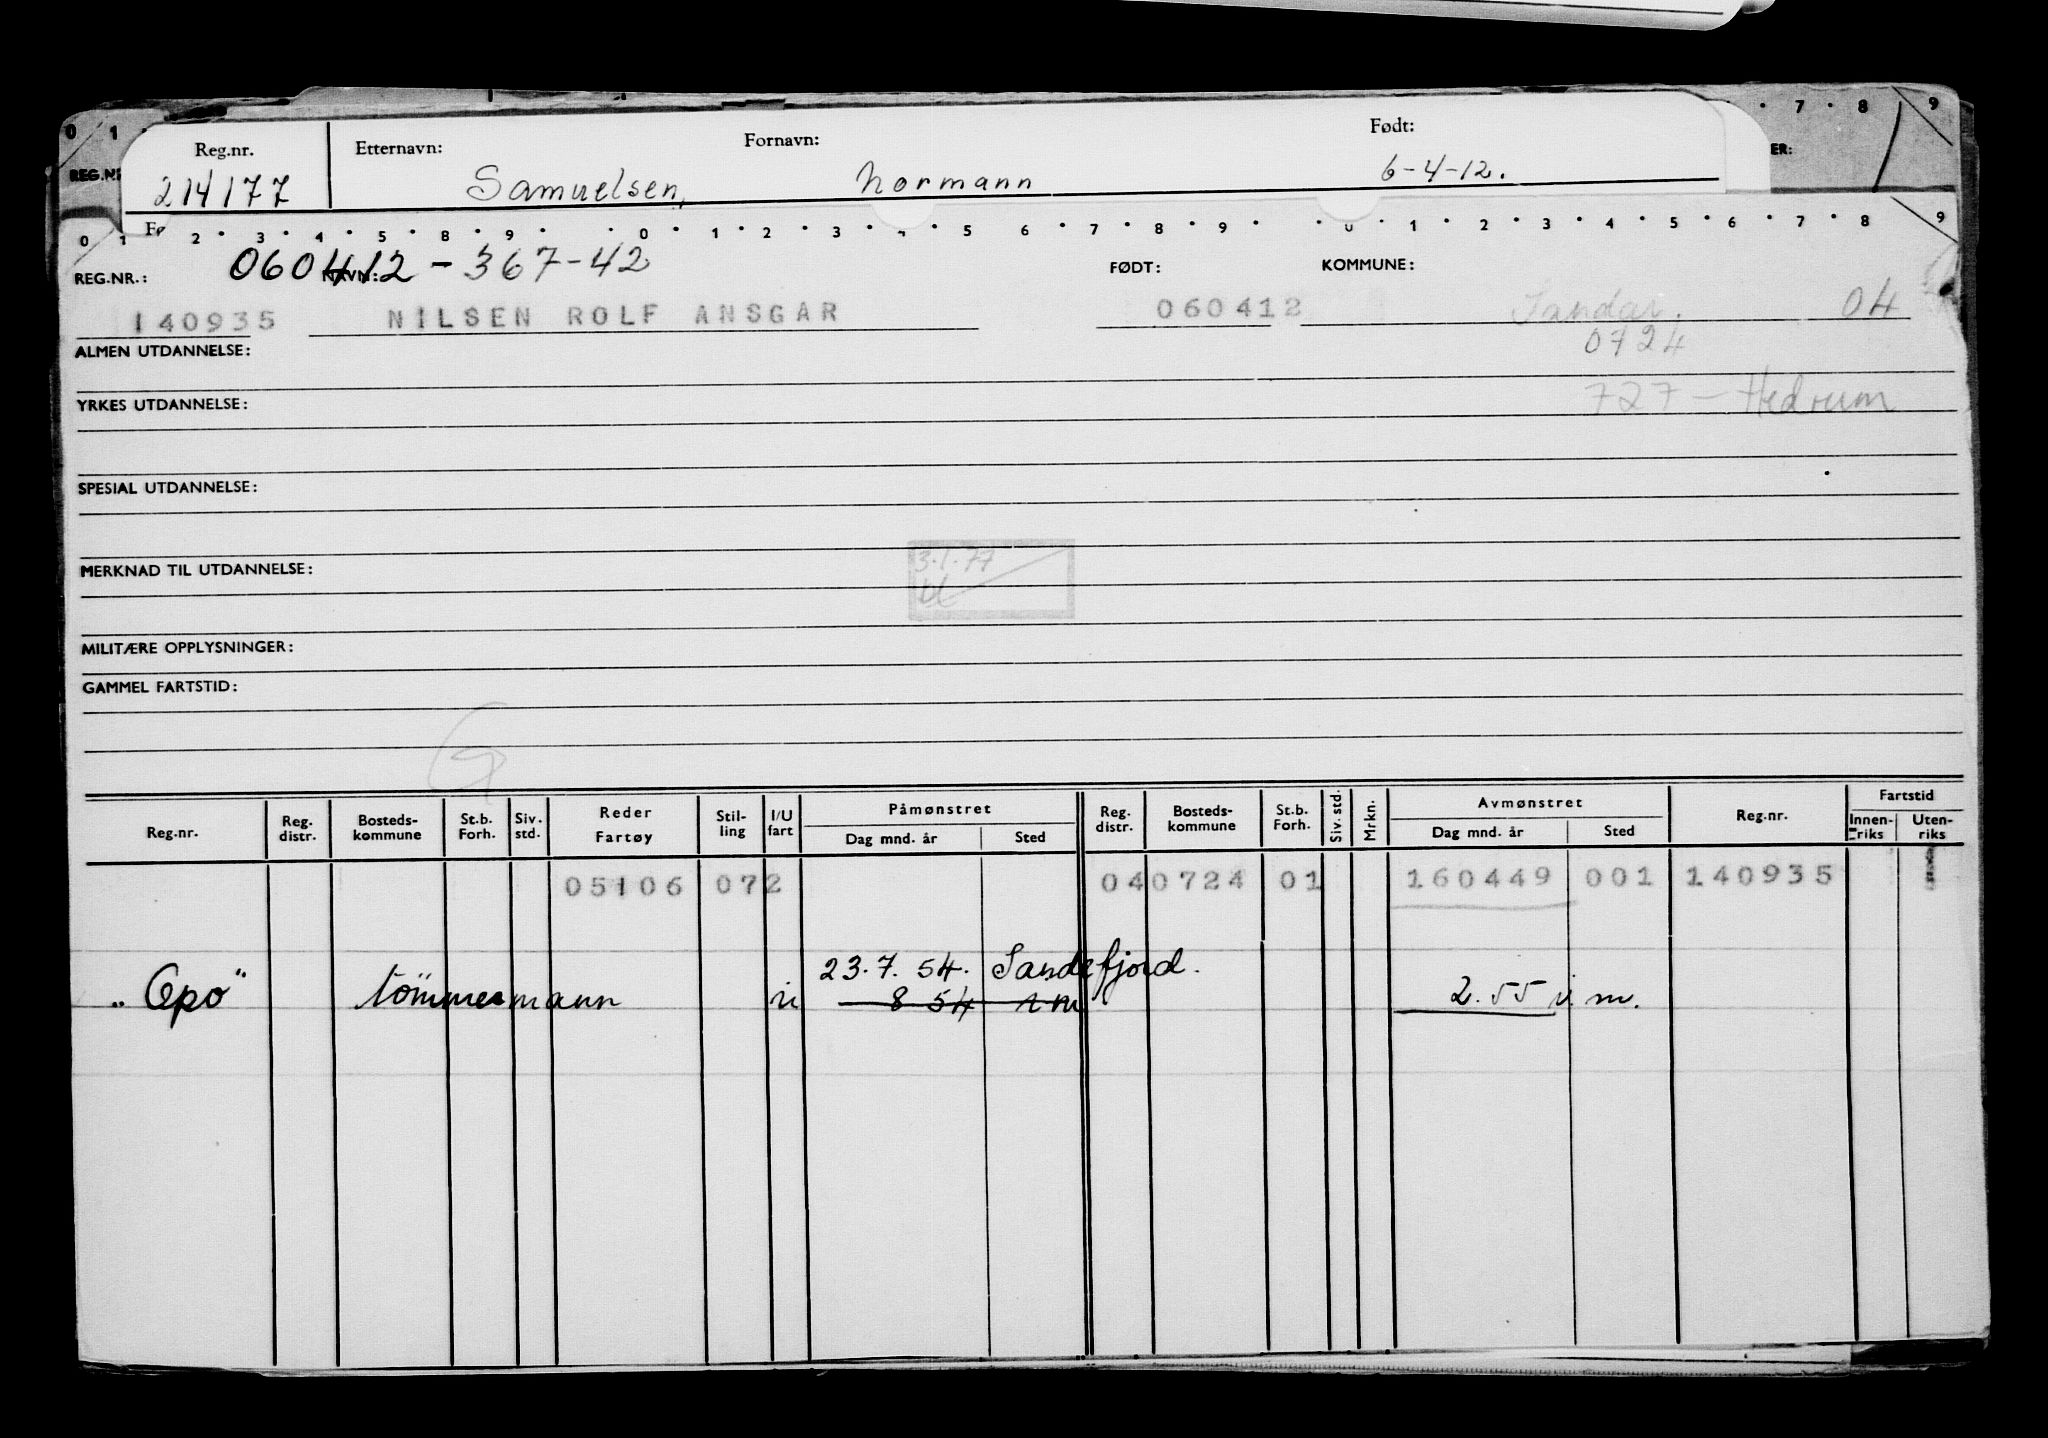 0 1 7 8 9
Reg.nr. Etternavn: Fornavn: Født:
REG.NR ER:
214177 Samuelsen, Normann 6-4-12.
Fø
0 1 2 3 4 5 8 9 0 1 2 3 4 5 6 7 8 9 0 1 2 3 4 5 6 7 8 9
REG.NR.: 060412-367-42 NAVN: FØDT: KOMMUNE:
140935 NILSEN ROLF ANSGAR 060412 Sandar. 04
0724
ALMEN UTDANNELSE:
YRKES UTDANNELSE: 727 - Hedrum
SPESIAL UTDANNELSE:
3.1.77
MERKNAD TIL UTDANNELSE:
MILITÆRE OPPLYSNINGER:
GAMMEL FARTSTID:
G
Reg.nr. Reg. distr. Bosteds- kommune St.b. Forh. Siv. std. Reder Fartøy Stil- ling I/U fart Påmønstret Dag mnd. år Sted Reg. distr. Bosteds- kommune St.b. Forh. Siv. std. Mrkn. Avmønstret Dag mnd. år Sted Reg.nr. Fartstid Innen- riks Uten- riks
05106 072 040724 01 160449 001 140935
23.7.54. Sandefjord.
"Opo" tömmermann u 8 54 i m 2.55 i m.